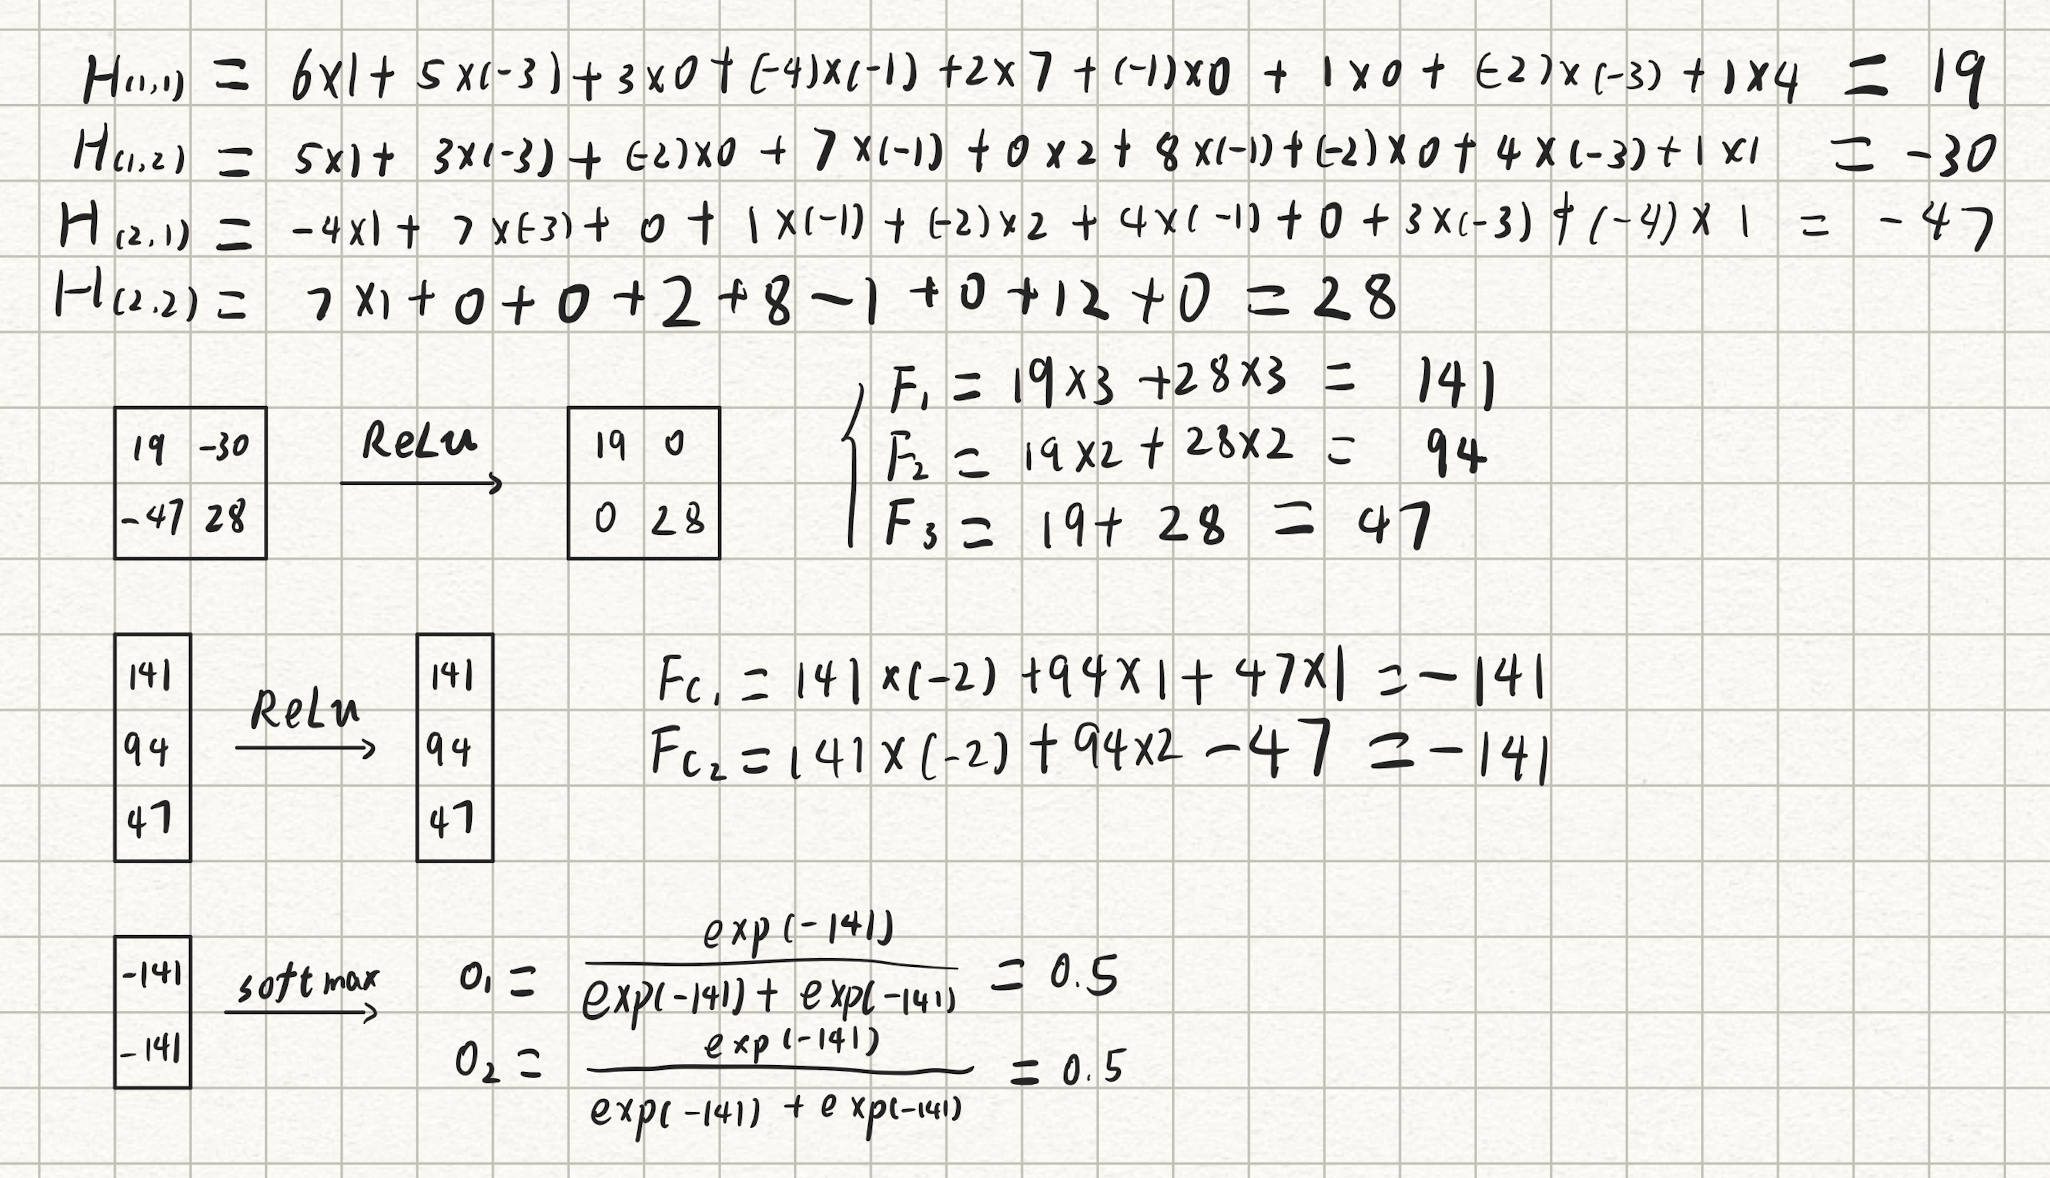 H(1,1) = 6×1 + 5×(-3) + 3×0 + (-4)×(-1) + 2×7 + (-1)×0 + 1×0 + (-2)×(-3) + 1×4 = 19
H(1,2) = 5×1 + 3×(-3) + (-2)×0 + 7×(-1) + 0×2 + 8×(-1) + (-2)×0 + 4×(-3) + 1×1 = -30
H(2,1) = -4×1 + 7×(-3) + 0 + 1×(-1) + (-2)×2 + 4×(-1) + 0 + 3×(-3) + (-4)×1 = -47
H(2,2) = 7×1 + 0 + 0 + 2 + 8 - 1 + 0 + 12 + 0 = 28
19 -30
-47 28
ReLu
19 0
0 28
F1 = 19×3 + 28×3 = 141
F2 = 19×2 + 28×2 = 94
F3 = 19 + 28 = 47
141
94
47
ReLu
141
94
47
Fc1 = 141×(-2) + 94×1 + 47×1 = -141
Fc2 = 141×(-2) + 94×2 - 47 = -141
-141
-141
softmax
O1 = exp(-141) / exp(-141) + exp(-141) = 0.5
O2 = exp(-141) / exp(-141) + exp(-141) = 0.5